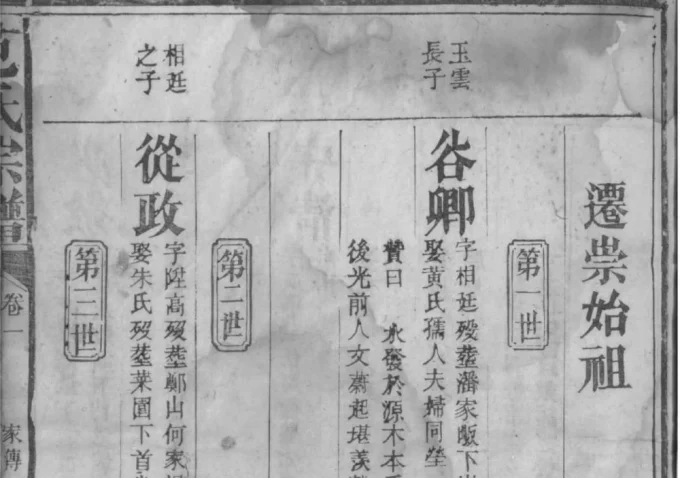 遷崇始祖
第一世
玉雲
長子
谷卿
字相廷歿塟潘家畈下
娶黃氏孺人夫婦同塋
贊曰 水發於源木本
後光前人文蔚起堪羨
第二世
相廷
之子
從政
字陞高歿塟鄭山何家
娶朱氏歿塟菜園下首
第三世
范氏宗譜
卷一
家傳